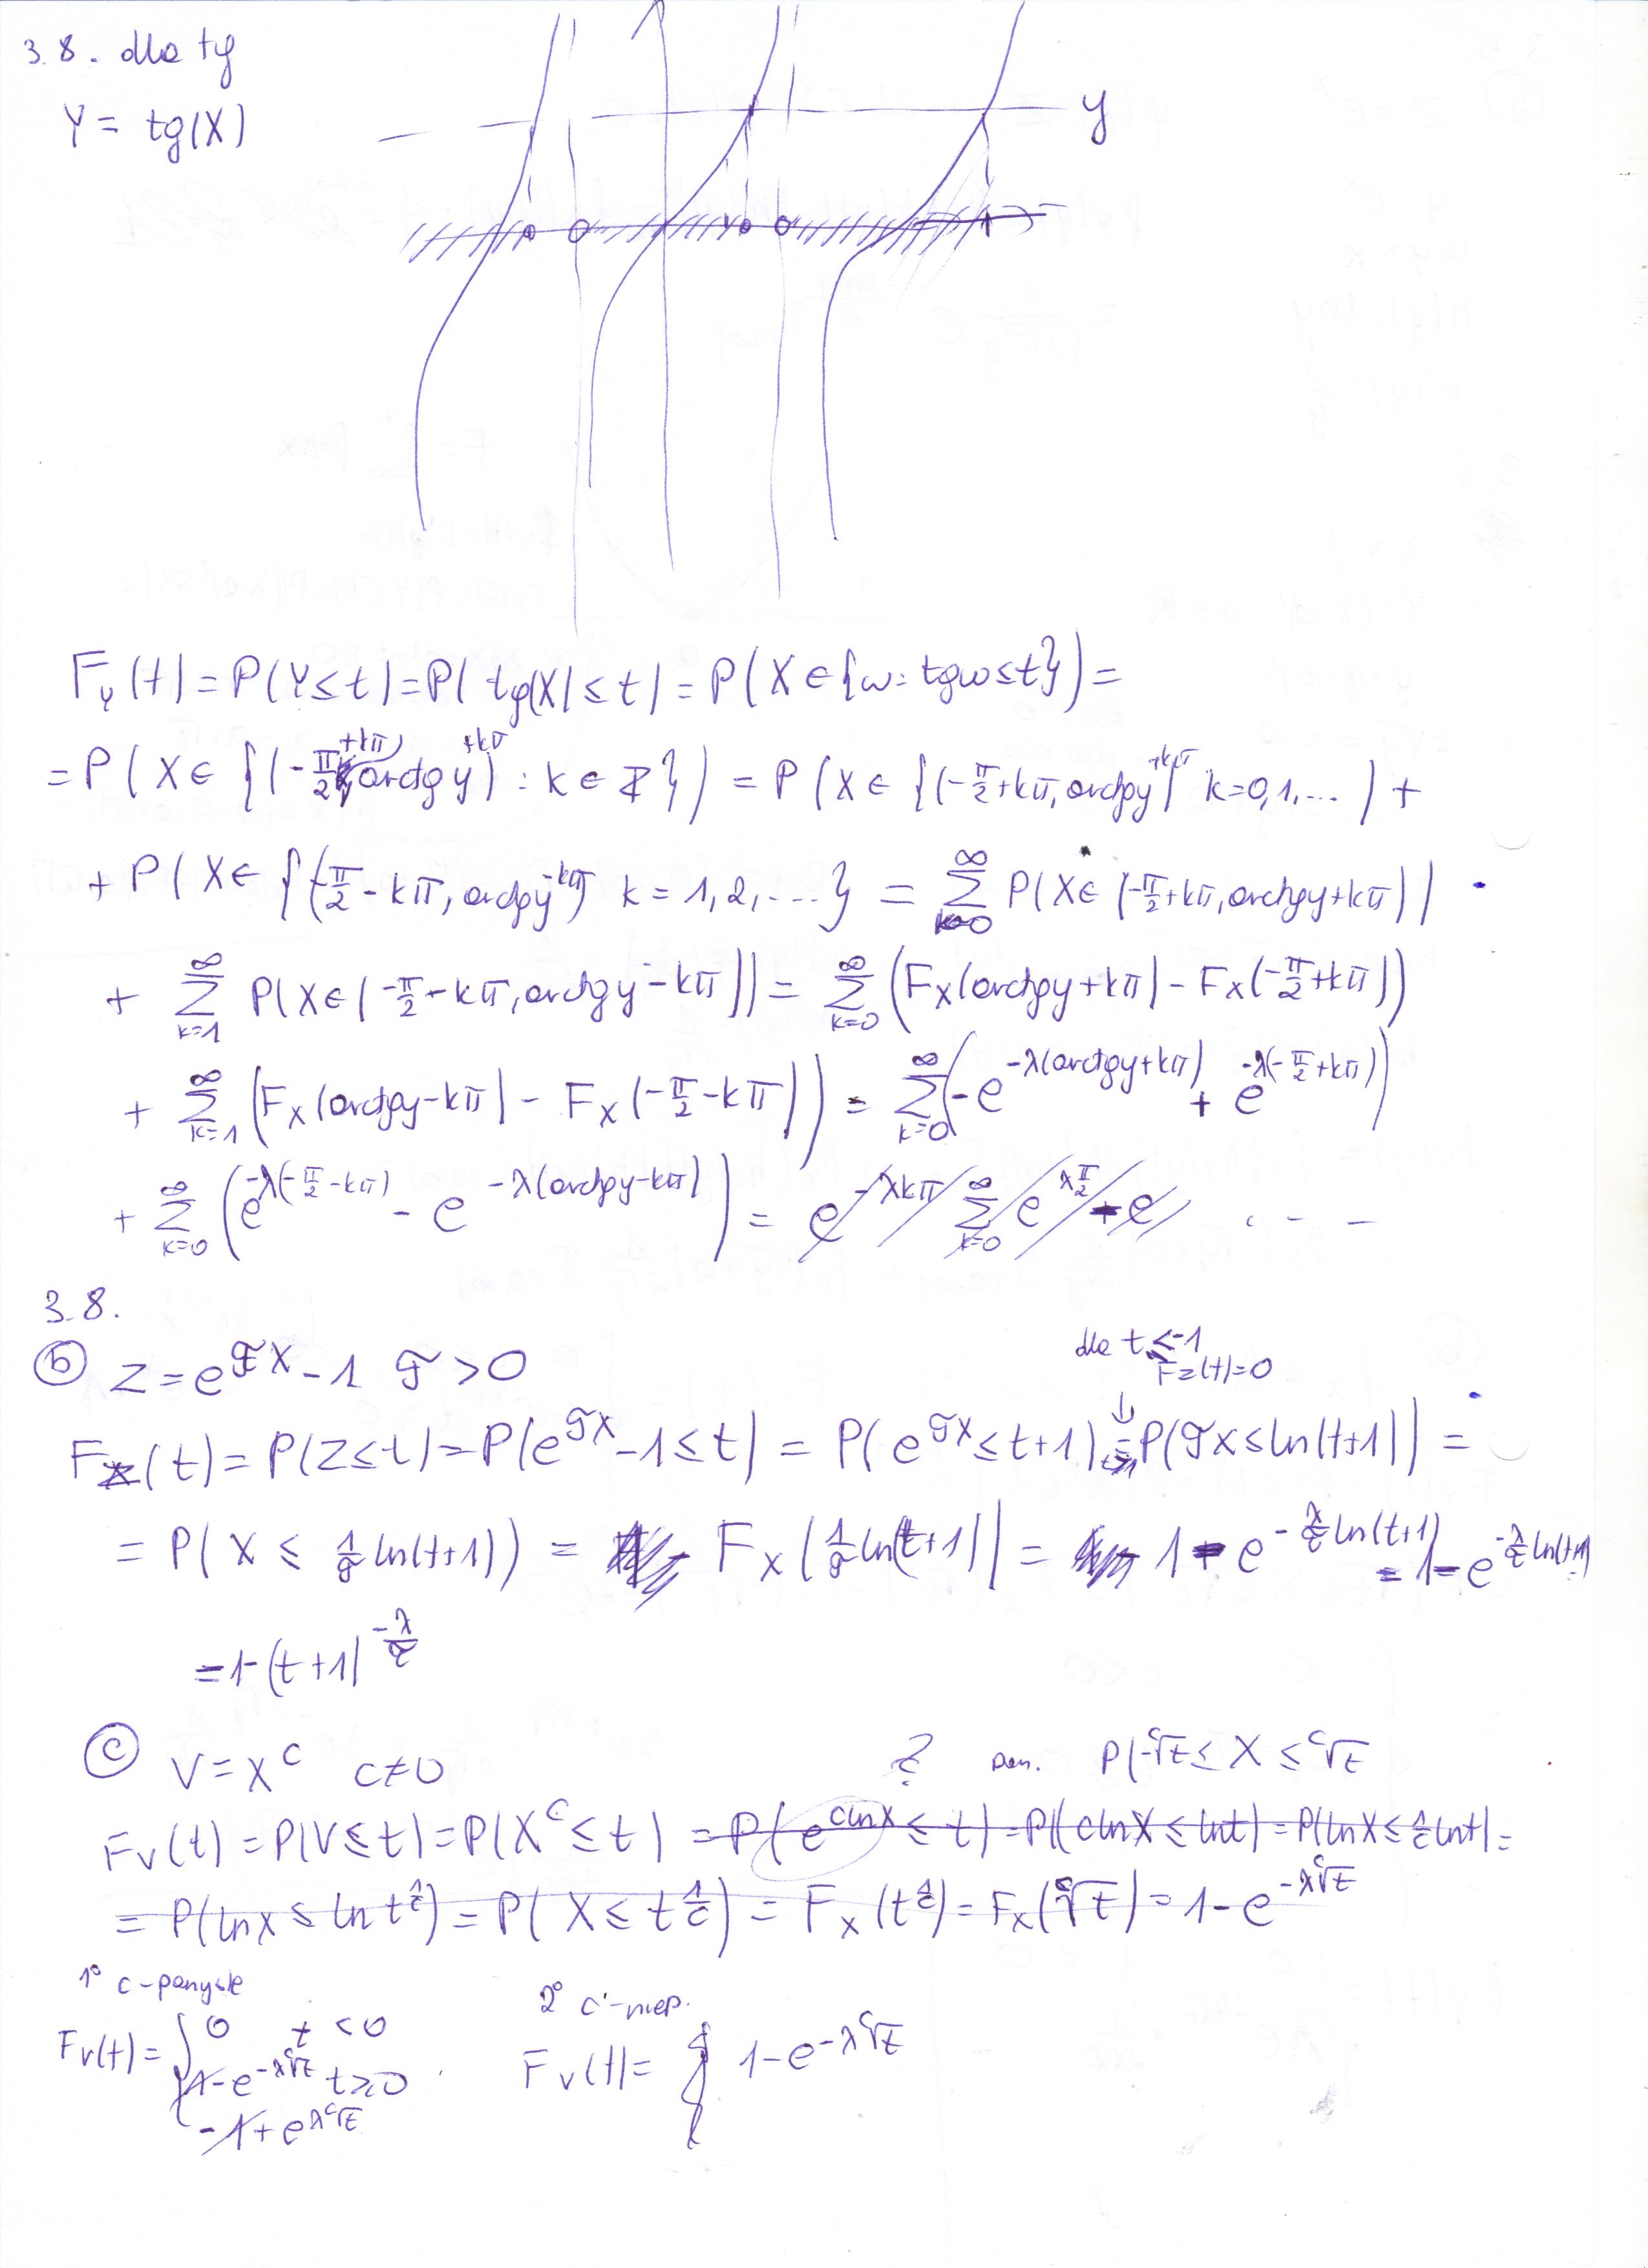 3.8. dla tg
Y = tg(X)
y
F_Y(t) = P(Y ≤ t) = P( tg(X) ≤ t) = P(X ∈ {ω: tgω ≤ t}) =
= P( X ∈ {(-π/2 +kπ, arctgy +kπ) : k ∈ Z}) = P (X ∈ {(-π/2+kπ, arctgy +kπ) k=0,1,... ) +
+ P(X ∈ {(-π/2 - kπ, arctgy -kπ) k = 1,2,...} = ∑_{k=0}^∞ P(X ∈ (-π/2+kπ, arctgy+kπ))
+ ∑_{k=1}^∞ P(X ∈ (-π/2 - kπ, arctgy - kπ)) = ∑_{k=0}^∞ (F_X(arctgy+kπ) - F_X(-π/2+kπ))
+ ∑_{k=1}^∞ (F_X(arctgy-kπ) - F_X(-π/2-kπ)) = ∑_{k=0}^∞ (-e^{-λ(arctgy+kπ)} + e^{-λ(-π/2+kπ)})
+ ∑_{k=0}^∞ (e^{-λ(-π/2-kπ)} - e^{-λ(arctgy-kπ)}) = e^{-λkπ} ∑_{k=0}^∞ e^{λπ/2} + e ...
3.8.
dla t ≤ -1
F_Z(t)=0
(b) Z = e^{τX} - 1 τ > 0
F_Z(t) = P(Z ≤ t) = P(e^{τX} - 1 ≤ t) = P(e^{τX} ≤ t+1) = P(τX ≤ ln(t+1)) =
= P(X ≤ 1/τ ln(t+1)) = F_X(1/τ ln(t+1)) = 1 - e^{-λ/τ ln(t+1)} = 1 - e^{-λ/τ ln(t+1)}
= 1-(t+1)^{-λ/τ}
(c) V = X^c c ≠ 0 ? P(-^c√t ≤ X ≤ ^c√t
F_V(t) = P(V ≤ t) = P(X^c ≤ t) = P(e^{clnX} ≤ t) = P((clnX ≤ lnt) = P(lnX ≤ 1/c lnt) =
= P(lnX ≤ ln t^{1/c}) = P( X ≤ t^{1/c}) = F_X(t^{1/c}) = F_X(^c√t) = 1 - e^{-λ^c√t}
1° c-parzyste
F_V(t) = { 0 t < 0
1-e^{-λ^c√t} t ≥ 0
-1 + e^{λ^c√t}
2° c-niep.
F_V(t) = { 1-e^{-λ^c√t}